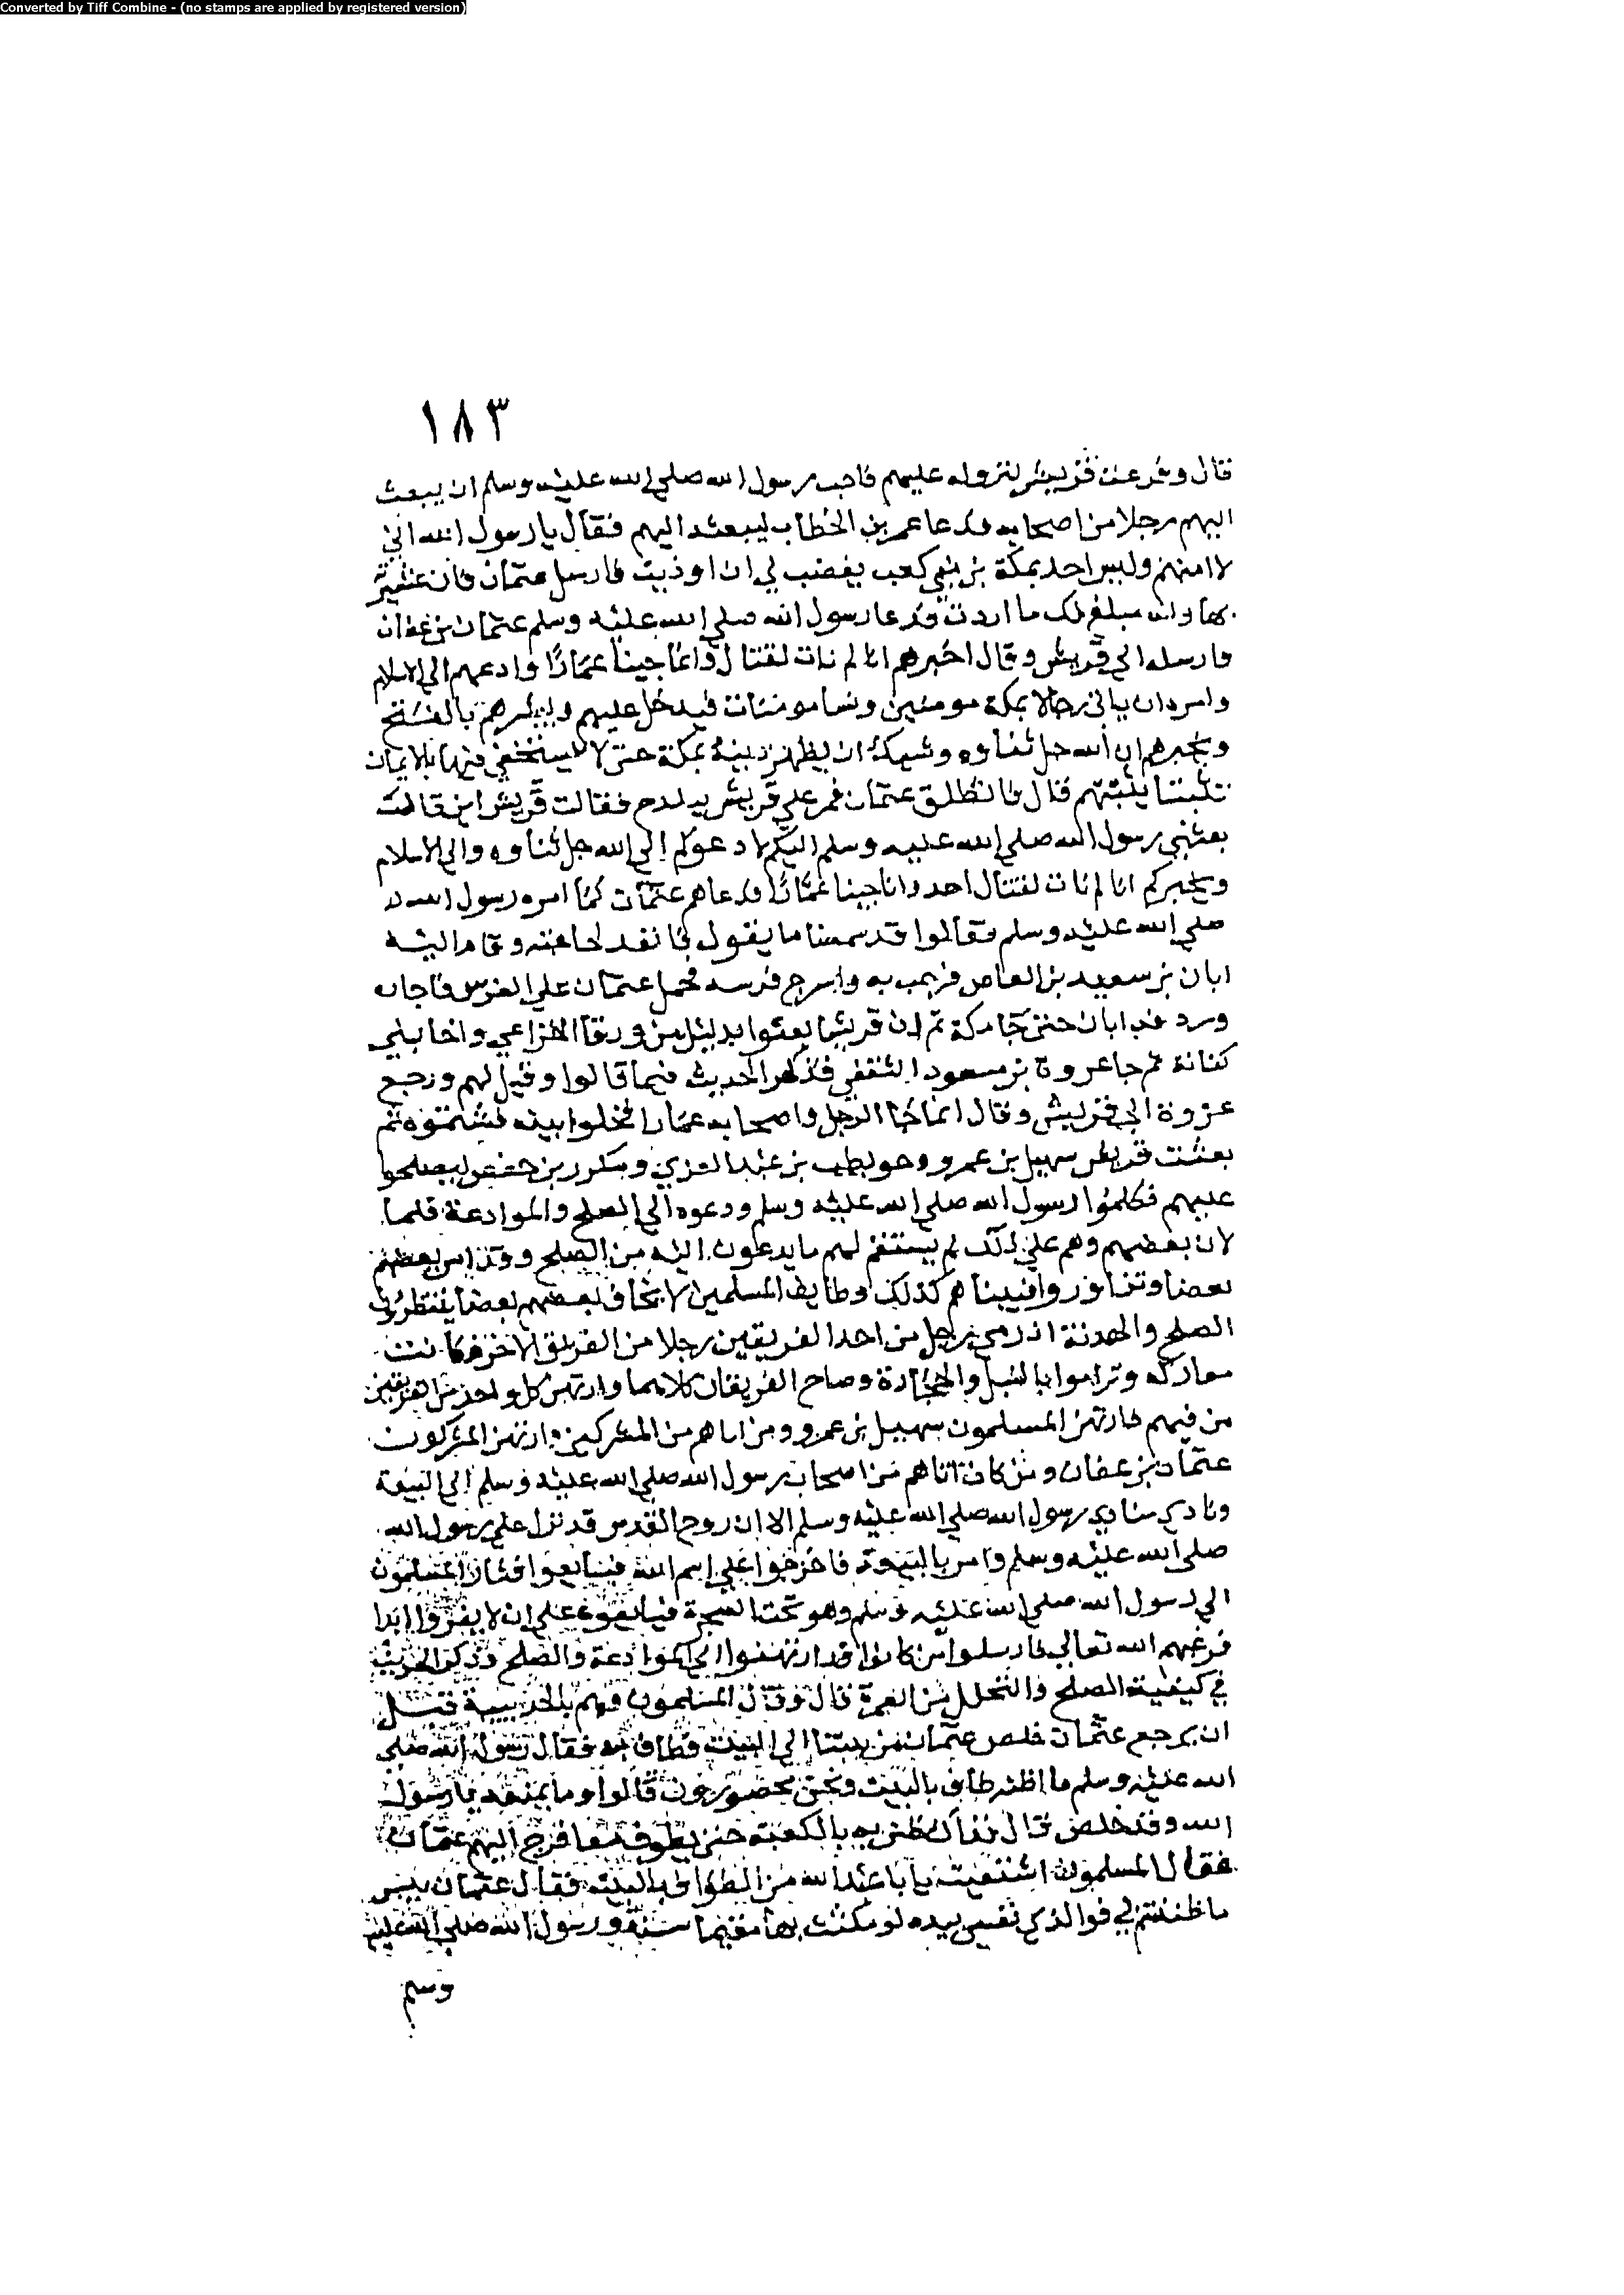 Converted by Tiff Combine - (no stamps are applied by registered version)
١٨٣
قال وفزعت قريش لنزوله عليهم فاحب رسول الله صلي الله عليه وسلم ان يبعث
اليهم رجلا من اصحابه فدعا عمر بن الخطاب ليبعثه اليهم فقال يا رسول الله اني
لا امنهم وليس احد بمكة من بني كعب يغضب لي ان اوذيت فارسل عثمان فان عشيرته
بها وانه مبلغ لك ما اردت فدعا رسول الله صلي الله عليه وسلم عثمان بن عفان
فارسله الي قريش وقال اخبرهم انا لم نات لقتال وانما جينا عمارا وادعهم الي الاسلام
وامره ان ياتي رجالا بمكة مومنين ونسا مومنات فيدخل عليهم ويبشرهم بالفتح
ويخبرهم ان الله جل ثناوه وشيك ان يظهر دينه بمكة حتي لا يستخفي فيها بالايمان
تثبيتا يثبتهم قال فانطلق عثمان فمر علي قريش ببلدح فقالت قريش اين قالت
بعثني رسول الله صلي الله عليه وسلم اليكم لادعوكم الي الله جل ثناوه والي الاسلام
ويخبركم انا لم نات لقتال احد وانا جينا عمارا فدعاهم عثمان كما امره رسول الله
صلي الله عليه وسلم فقالوا قد سمعنا ما يقول فانفد لحاجته وقام اليه
ابان بن سعيد بن العاص فرحب به واسرج فرسه فحمل عثمان علي الفرس فاجاره
وردفه ابان حتي جا مكة ثم ان قريشا بعثوا بديل بن ورقا الخزاعي واخا بني
كنانة ثم جا عروة بن مسعود الثقفي فذكر الحديث فيما قالوا وقيل لهم ورجع
عروة الي قريش وقال انما جا الرجل واصحابه عمارا فخلوا بينه فشتموه ثم
بعثت قريش سهيل بن عمرو وحويطب بن عبد العزي ومكرز بن حفص ليصلحوا
عليهم فكلموا رسول الله صلي الله عليه وسلم ودعوه الي الصلح والموادعة فلما
لان بعضهم وهم علي ذلك لم يستقم لهم ما يدعون اليه من الصلح وقد امن بعضهم
بعضا وتزاوروا فبينا هم كذلك وطايف المسلمين لا يخاف بعضهم بعضا ينتظرون
الصلح والهدنة اذ رمي رجل من احد الفريقين رجلا من الفريق الاخر فكانت
معاركة وتراموا بالنبل والحجارة وصاح الفريقان كلاهما وارتهن كل واحد من الفريقين
من فيهم فارتهن المسلمون سهيل بن عمرو ومن اتاهم من المشركين وارتهن المشركون
عثمان بن عفان ومن كان اتاهم من اصحاب رسول الله صلي الله عليه وسلم الي البيعة
ونادي منادي رسول الله صلي الله عليه وسلم الا ان روح القدس قد نزل علي رسول الله
صلي الله عليه وسلم وامر بالبيعة فاخرجوا علي اسم الله فبايعوا فثار المسلمون
الي رسول الله صلي الله عليه وسلم وهو تحت الشجرة فبايعوه علي ان لا يفروا ابدا
فرعبهم الله تعالي فارسلوا من كانوا قد ارتهنوا الي الموادعة والصلح وذكر الحديث
في كيفية الصلح والتحلل من العمرة قال وقال المسلمون وهم بالحديبية قبل
ان يرجع عثمان خلص عثمان من بيننا الي البيت فطاف به فقال رسول الله صلي
الله عليه وسلم ما اظنه طاف بالبيت ونحن محصورون قالوا وما يمنعه يا رسول
الله وقد خلص قال ذاك ظني به بالكعبة حتي يطوف معا فرجع اليهم عثمان
فقال المسلمون اشتفيت يا با عبد الله من الطواف بالبيت فقال عثمان بيس
ما ظننتم لي فوالذي نفسي بيده لو مكثت بها مقيما سنة ورسول الله صلي الله عليه
وسلم